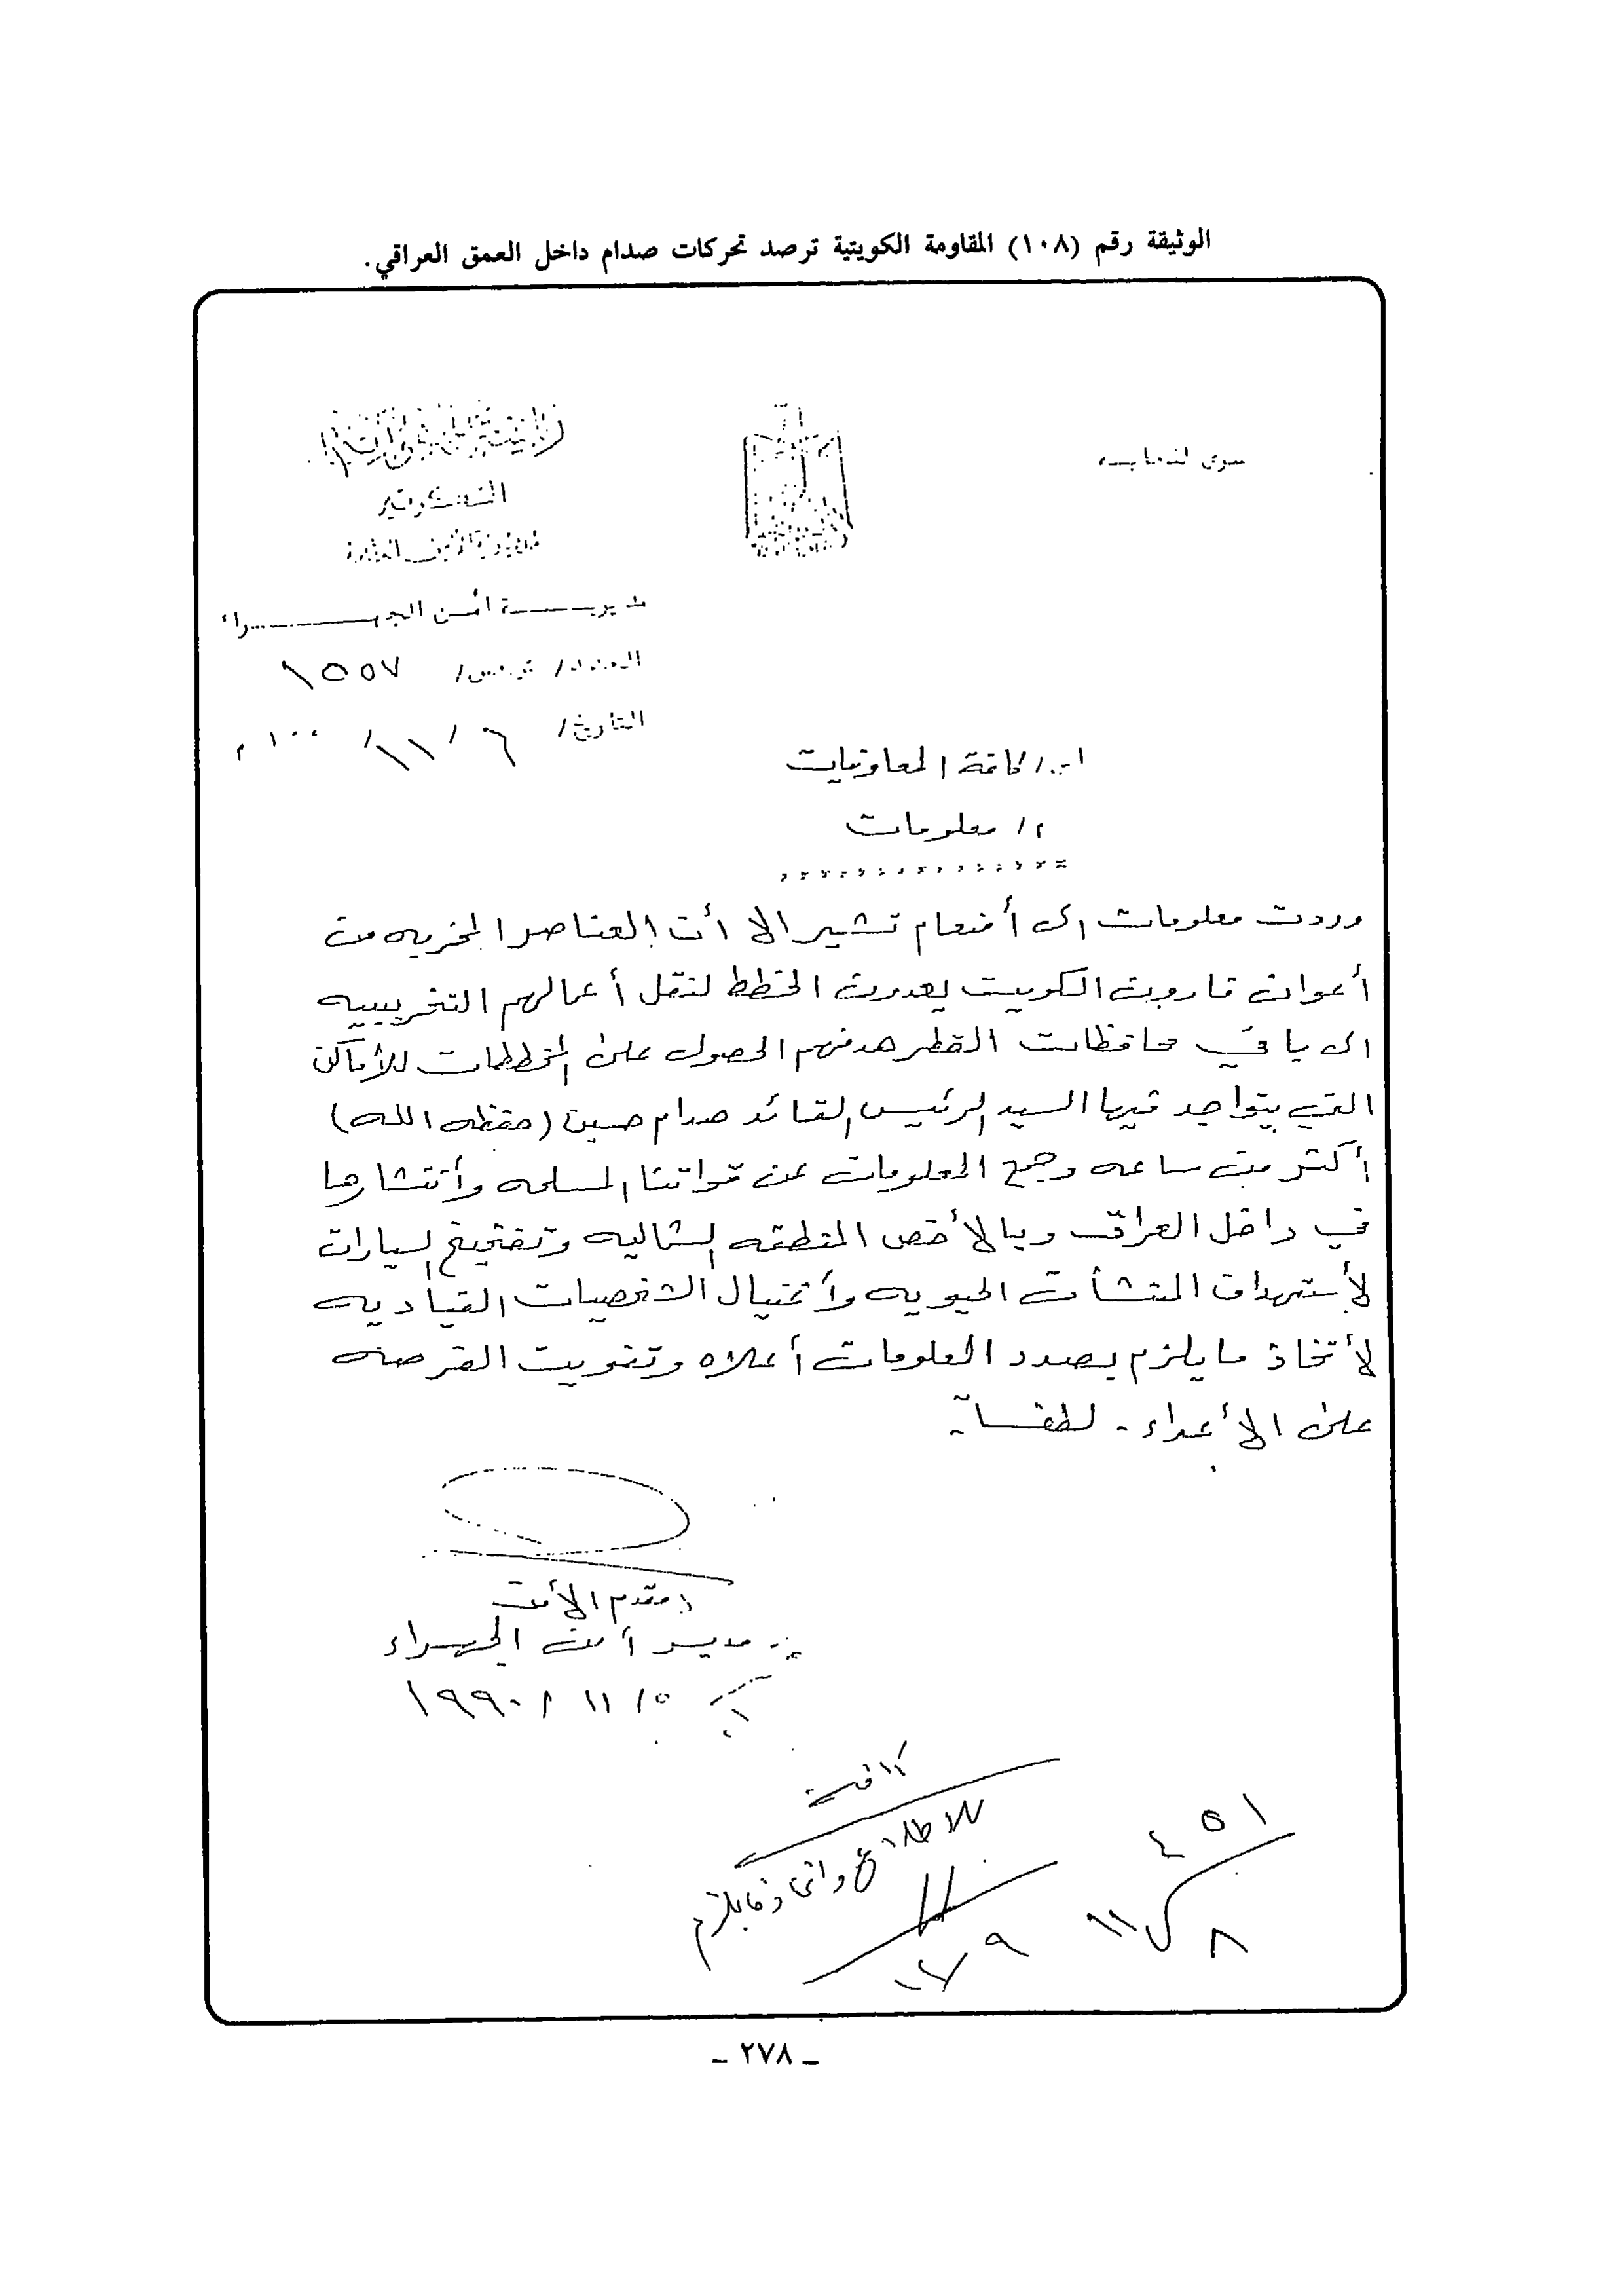 الوثيقة رقم (١٠٨) المقاومة الكويتية ترصد تحركات صدام داخل العمق العراقي.
سري
مديريـــــة أمـن الجهـــــراء
العدد/ ١٥٥٧
التاريخ/ ٦ / ١١/
كافة المعاونيات
م/ معلومات
وردت معلومات الى أمنعام تشير الا أن العناصر المخربه من
أعوان قارون الكويت يعدون الخطط لنقل أعمالهم التخريبيه
الى باقي محافظات القطر هدفهم الحصول على المخططات للأماكن
التي يتواجد فيها السيد الرئيس القائد صدام حسين (حفظه الله)
أكثر من ساعه وجمع المعلومات عن قواتنا المسلحه وأنتشارها
في داخل العراق وبالأخص المنطقه الشماليه وتفخيخ السيارات
لأستهداف المنشأت الحيويه وأغتيال الشخصيات القياديه
لأتخاذ مايلزم بصدد المعلومات أعلاه وتفويت الفرصه
على الأعداء - لطفـاً -
مقدم الأمن
مديـر أمن الجهـراء
١٩٩٠/ ١١ /٥
كافة
للاطلاع واتخاذ مايلزم
٤٥١
٨ ١١
ـ ٢٧٨ ـ